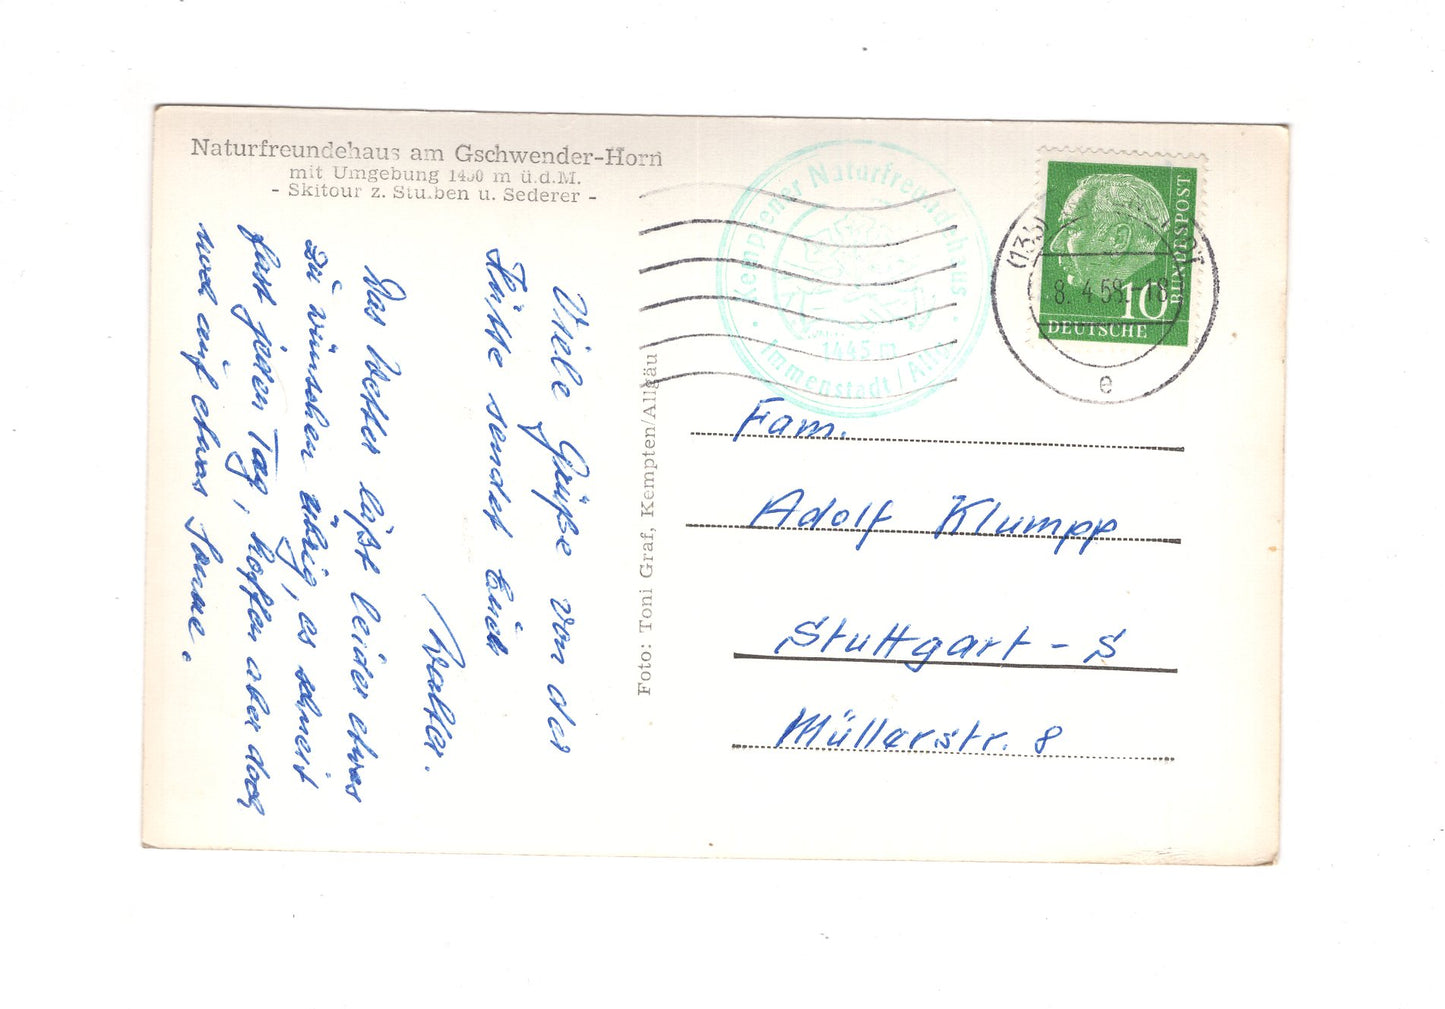 Naturfreundehaus am Gschwender-Horn
mit Umgebung 1450 m ü.d.M.
- Skitour z. Stuiben u. Sederer -
Viele Grüße von der
Hütte sendet Euch
Walter.
Das Wetter läßt leider etwas
zu wünschen übrig, es schneit
fast jeden Tag, hoffen aber doch
noch auf etwas Sonne.
Foto: Toni Graf, Kempten/Allgäu
Kemptener Naturfreundehaus
1445 m
Immenstadt / Allg.
DEUTSCHE
BUNDESPOST
10
(13b)
8. 4.58.-18
e
Fam.
Adolf Klumpp
Stuttgart - S
Müllerstr. 8